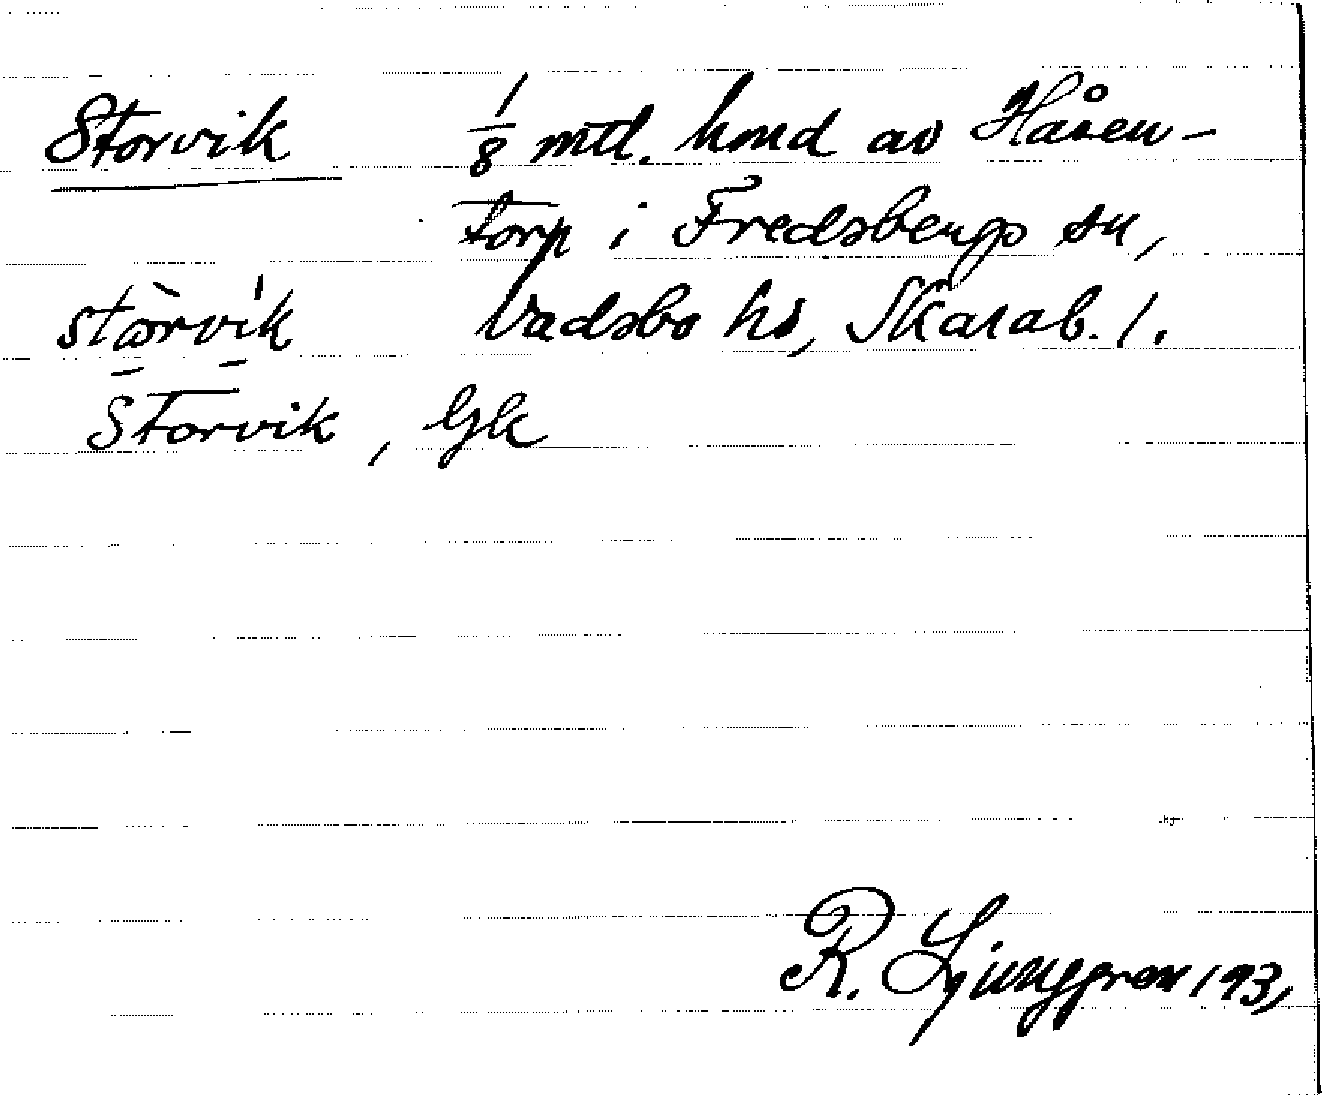 Storvik 1/8 mtl. hmd av Håsen-
torp i Fredsbergs sn,
stòrvík Vadsbo hd, Skarab. l.
Storvik, Gk
R. Ljunggren 1931